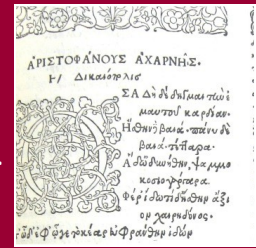 ἈΡΙΣΤΟΦΆΝΟΥΣ ἈΧΑΡΝΗ͂Σ.
Δικαιόπολις
ΣΑ Δὴ δέδηγμαι τὴν ἐ
μαυτοῦ καρδίαν.
βαιά. πάνυ δὲ
βαιά. τέτταρα.
Ἃ δ' ὠδυνήθην, ψαμμο
κοσιογάργαρα.
Φέρ' ἴδω τί δ' ἥσθην ἄξι
ον χαιρηδόνος.
ἐφ' ᾧ γε τὸ κέαρ ἰδών